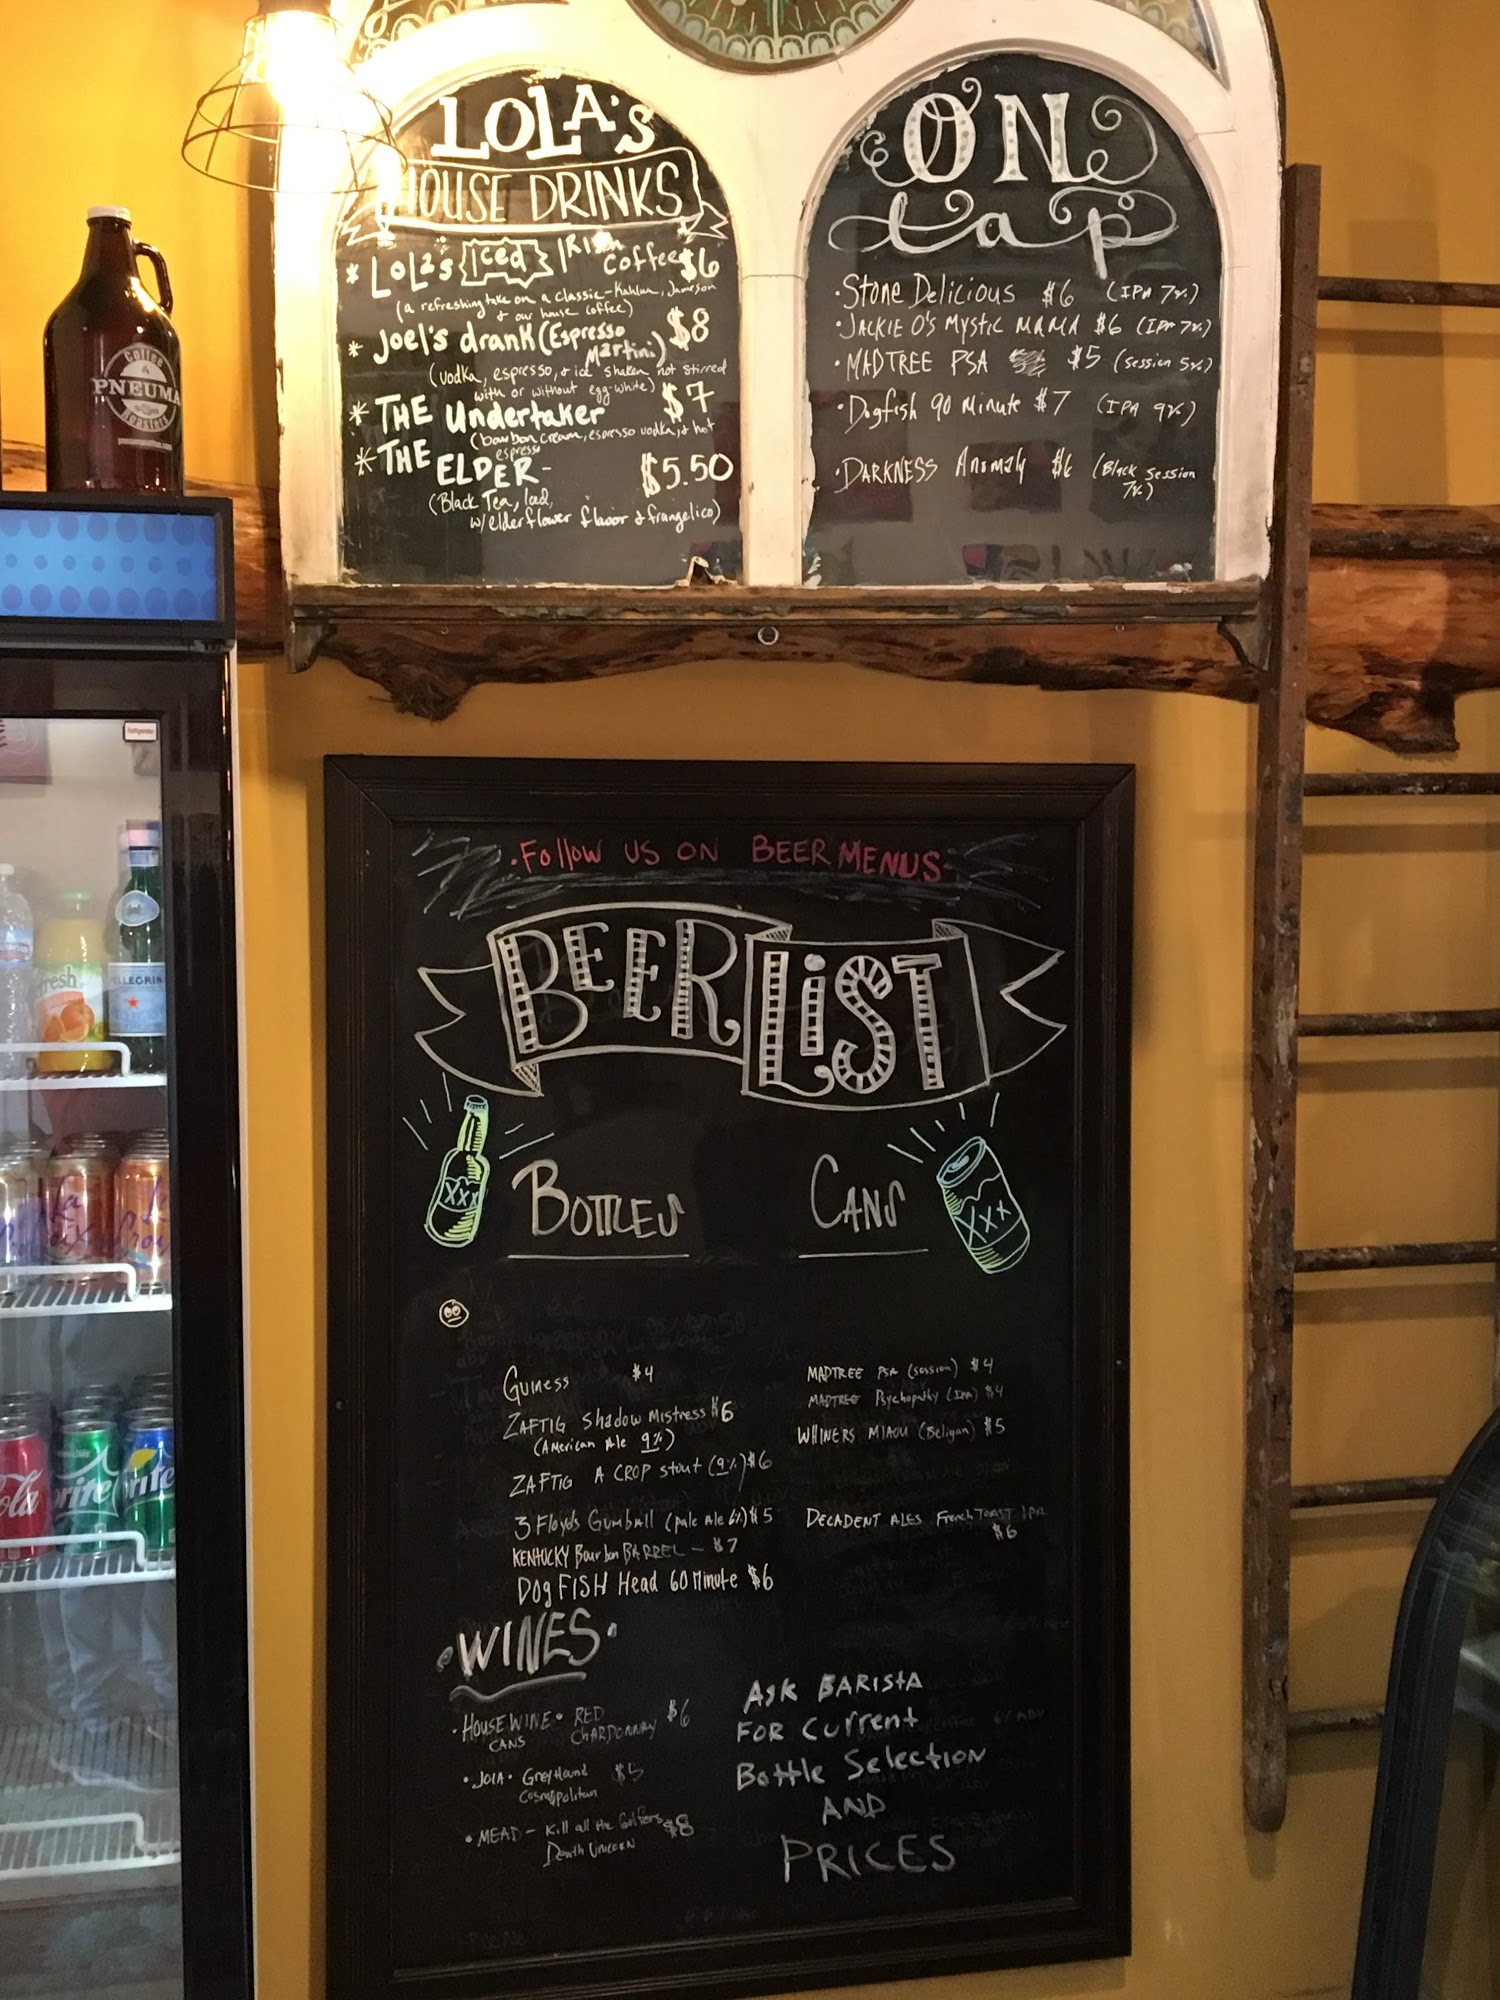 LOLA'S
HOUSE DRINKS
* LOLa's Iced IRISH coffee $6
(a refreshing take on a classic - Kahlua, Jameson
& our house coffee)
* Joel's drank (Espresso Martini) $8
(vodka, espresso, & ice shaken not stirred
with or without egg-white)
* THE Undertaker $7
(bourbon cream, espresso vodka, & hot
espresso
* THE ELDER - $5.50
(Black Tea, Iced,
w/ elderflower flavor & frangelico)
ON
tap
· Stone Delicious $6 (IPA 7%)
· JACKIE O's Mystic MAMA $6 (IPA 7%)
· MADTREE PSA $5 (Session 5%)
· Dogfish 90 Minute $7 (IPA 9%)
· DARKNESS Anomaly $6 (Black Session
7%)
Coffee
PNEUMA
Roasters
· Follow US ON BEER MENUS ·
BEER LIST
BOTTLES
CANS
XXX
XXX
Guiness $4
ZAFTIG Shadow Mistress $6
(American Ale 9%)
ZAFTIG A CROP stout (9%) $6
3 Floyds Gumball (pale Ale 6%) $5
KENTUCKY Bourbon BARREL - $7
Dog FISH Head 60 Minute $6
MADTREE PSA (session) $4
MADTREE Psychopathy (IPA) $4
WHINERS MIAOU (Beligan) $5
DECADENT ALES French Toast IPA
$6
· WINES ·
· HOUSE WINE · RED $6
CANS CHARDONNAY
· JOIA · Greyhound $5
Cosmopolitan
· MEAD - Kill all the Golfers $8
Death Unicorn
Ask BARISTA
FOR Current
Bottle Selection
AND
PRICES
fresh
PELLEGRINO
La Croix
Cola
Sprite
Sprite